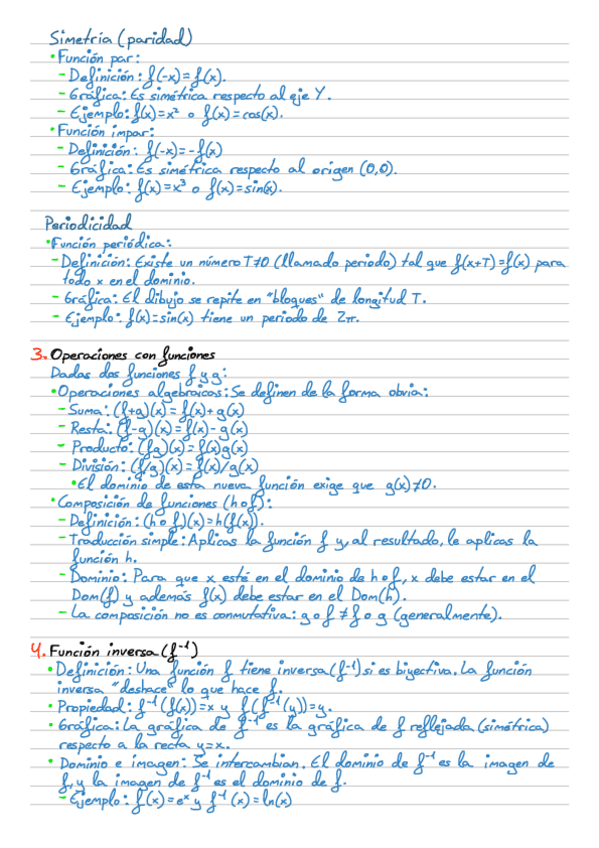 Simetría (paridad)
• Función par:
– Definición: f(-x)=f(x).
– Gráfica: Es simétrica respecto al eje Y.
– Ejemplo: f(x)=x² o f(x)=cos(x).
• Función impar:
– Definición: f(-x)=-f(x)
– Gráfica: Es simétrica respecto al origen (0,0).
– Ejemplo: f(x)=x³ o f(x)=sin(x).
Periodicidad
• Función periódica:
– Definición: Existe un número T≠0 (llamado periodo) tal que f(x+T)=f(x) para
todo x en el dominio.
– Gráfica: El dibujo se repite en "bloques" de longitud T.
– Ejemplo: f(x)=sin(x) tiene un periodo de 2π.
3. Operaciones con funciones
Dadas dos funciones f y g:
• Operaciones algebraicas: Se definen de la forma obvia:
– Suma: (f+g)(x)=f(x)+g(x)
– Resta: (f-g)(x)=f(x)-g(x)
– Producto: (fg)(x)=f(x)g(x)
– División: (f/g)(x)=f(x)/g(x)
• El dominio de esta nueva función exige que g(x)≠0.
• Composición de funciones (h∘f):
– Definición: (h∘f)(x)=h(f(x)).
– Traducción simple: Aplicas la función f y, al resultado, le aplicas la
función h.
– Dominio: Para que x esté en el dominio de h∘f, x debe estar en el
Dom(f) y además f(x) debe estar en el Dom(h).
– La composición no es conmutativa: g∘f≠f∘g (generalmente).
4. Función inversa (f⁻¹)
• Definición: Una función f tiene inversa (f⁻¹) si es biyectiva. La función
inversa "deshace" lo que hace f.
• Propiedad: f⁻¹(f(x))=x y f(f⁻¹(y))=y.
• Gráfica: La gráfica de f⁻¹ es la gráfica de f reflejada (simétrica)
respecto a la recta y=x.
• Dominio e imagen: Se intercambian. El dominio de f⁻¹ es la imagen de
f, y la imagen de f⁻¹ es el dominio de f.
– Ejemplo: f(x)=eˣ y f⁻¹(x)=ln(x)